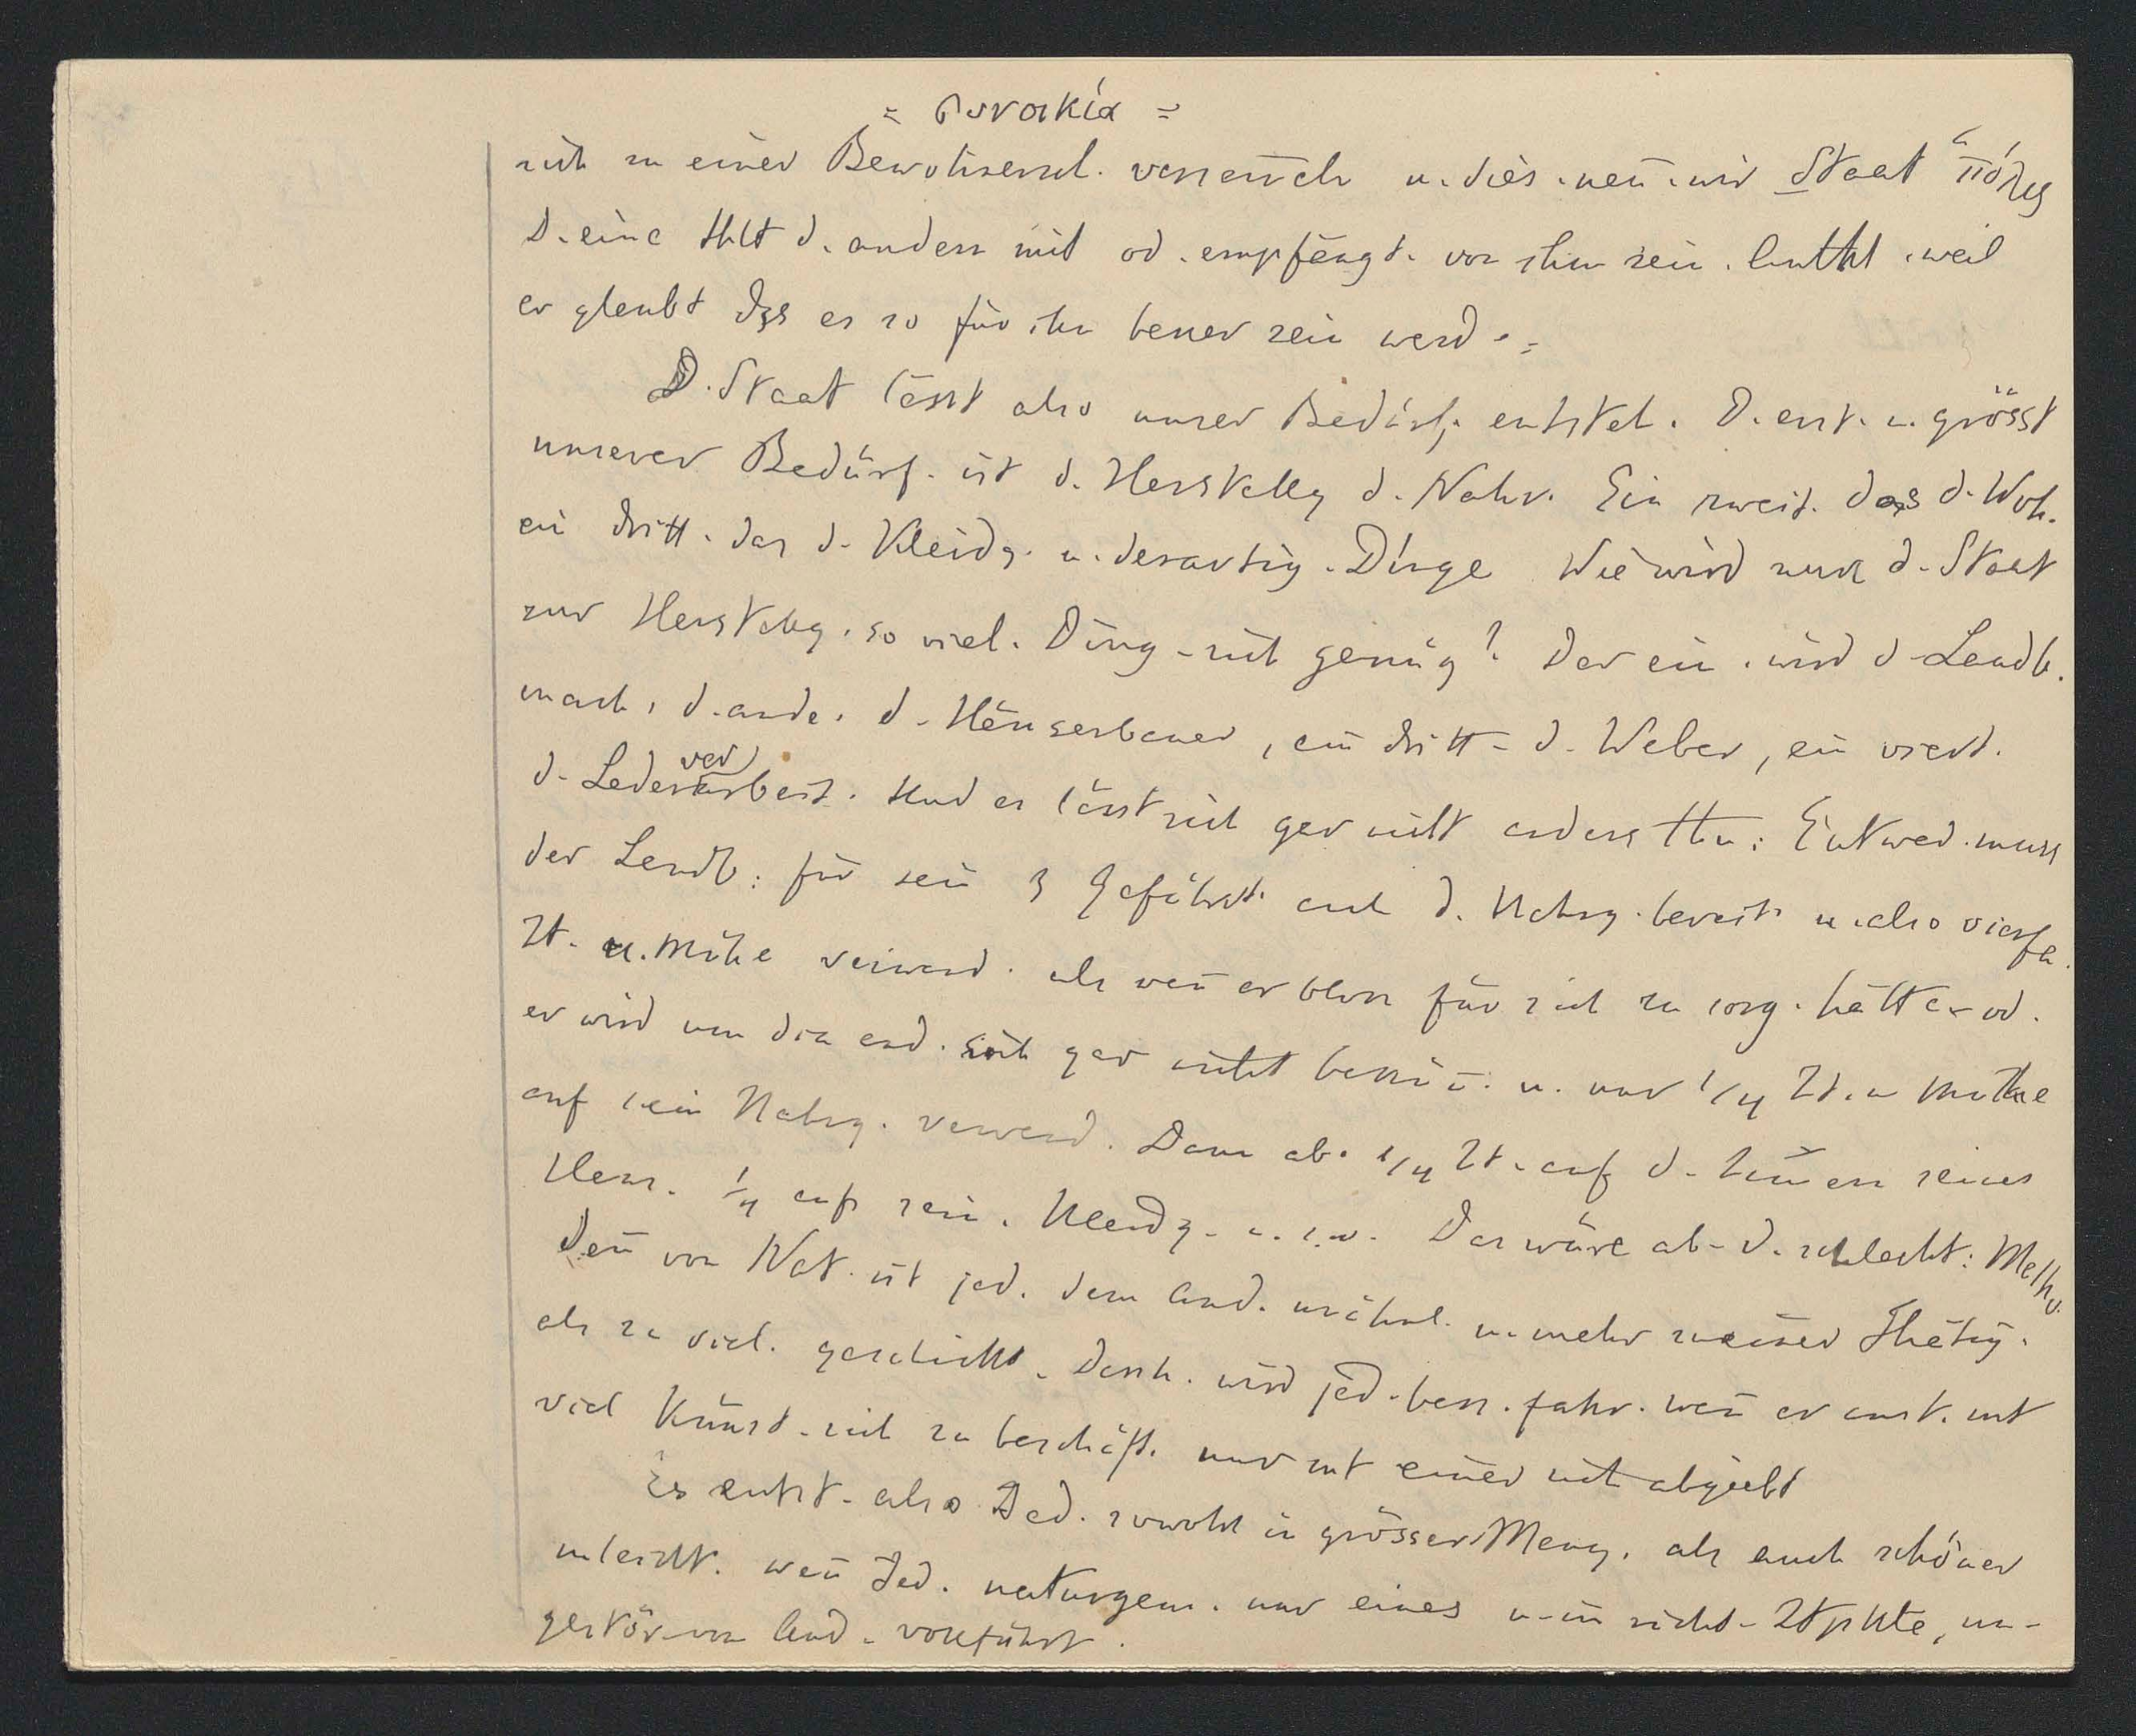 = συνοικία =
sich zu einer Bewohnersch. versammeln u. dies. nen̄. wir Staat „πόλις
D. eine thlt d. andern mit od. empfängt. von ihm sein. Anthl. weil
er glaubt dss es so für ihn besser sein werd. =
D. Staat lässt also unser Bedürf. entsteh. D. erst. u. grösst
unserer Bedürf. ist d. Herstellg d. Nahr. Ein zweit. das d. Woh.
ein dritt. das d. Kleidg. u. derartig. Dinge Wie wird nun d. Staat
zur Herstellg. so viel. Ding. sich genüg? Der ein. wird d. Landb.
mach, d. ande. d. Häuserbauer, ein dritt. d. Weber, ein viert.
d. Lederverarbeit. Und es lässt sich gar nicht anders thu: Entwed. muss
der Landb: für sein 3 Gefährt. auch d. Nahrg. bereit. u. also vierfa.
Zt. u. Mühe verwend. als wen̄ er bloss für sich zu sorg. hätte od.
er wird um die and. sich gar nicht beküm̄. u. nur 1/4 Zt. u Mühe
auf sein Nahrg. verwend. Dann ab. 1/4 Zt. auf d. Zim̄ern seines
Haus. 1/4 auf sein. Kleidg. u. s. w. Das wäre ab. d. schlecht: Metho.
Den̄ von Nat. ist jed. dem And. unähnl. u. mehr zu einer Thätig.
als zu viel. geschickt. Desh. wird jed. bess. fahr. wen̄ er anst. mit
viel Künst. sich zu beschäft. nur mit einer sich abgiebt
Es entst. also Jed. sowohl in grösser Meng. als auch schöner
u. leicht. wen̄ Jed. naturgem. nur eines u. im richt. Ztpkte, un-
gestör. von And. vollführt.